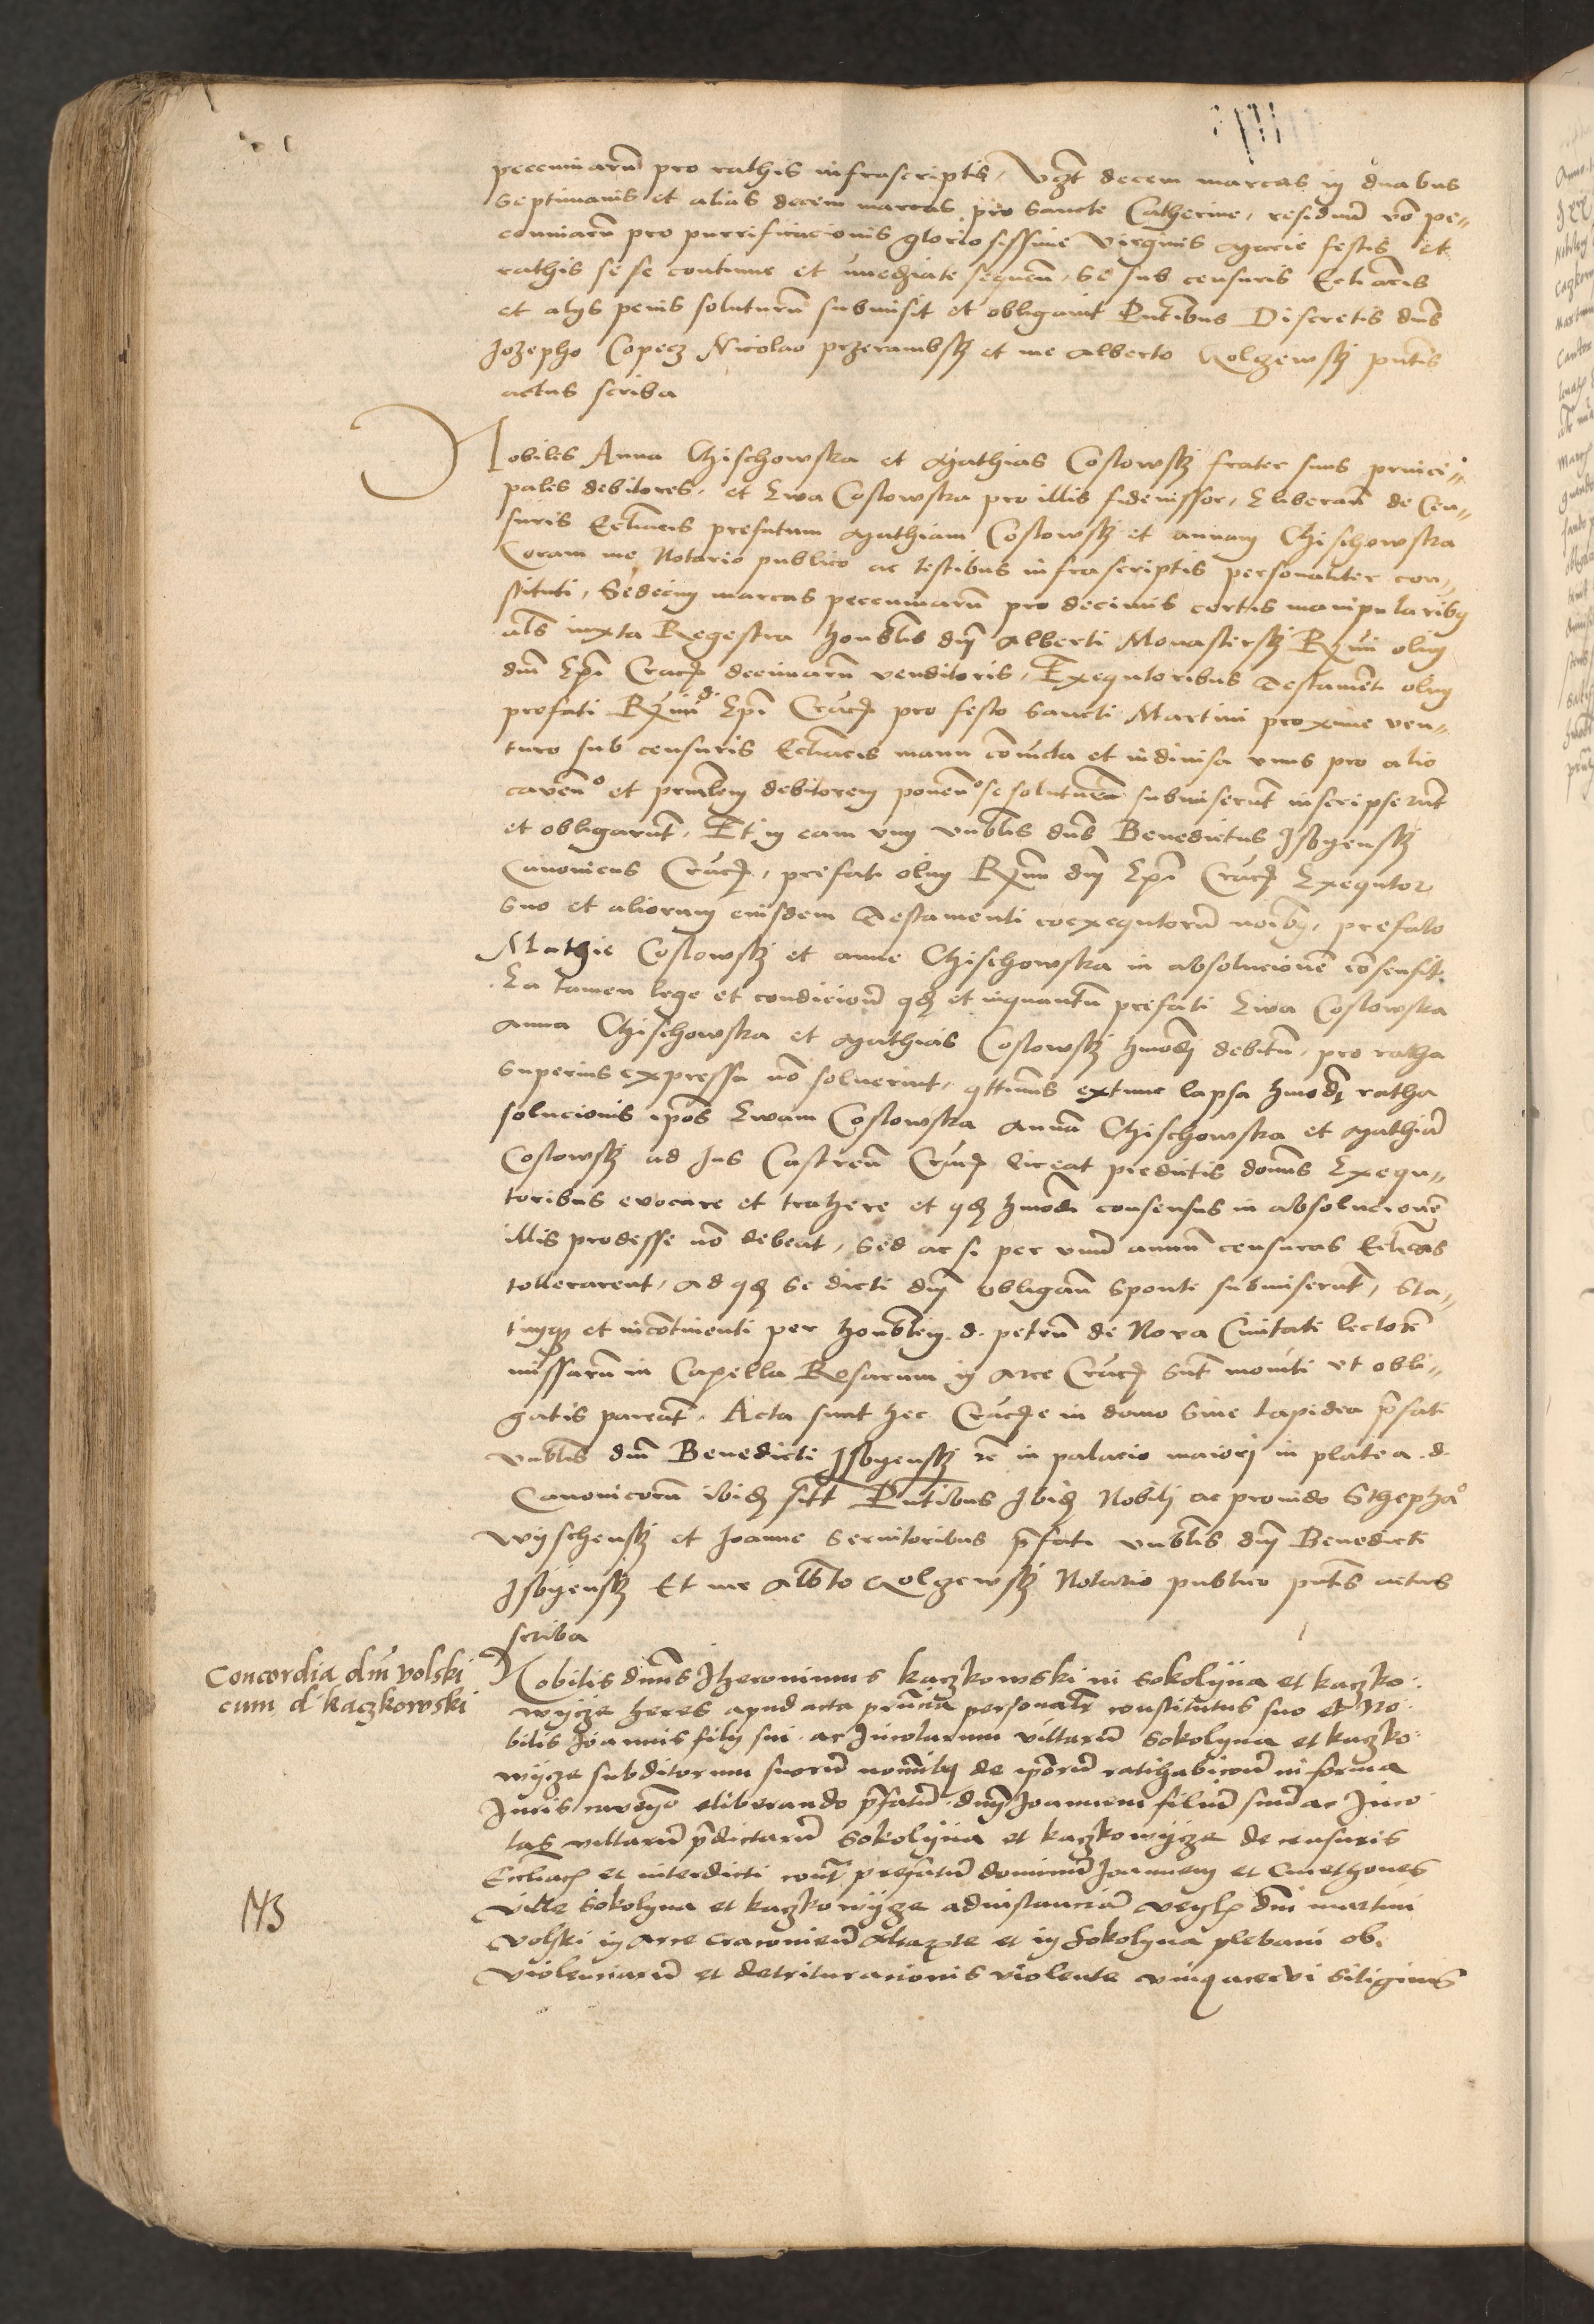 peccuniarum pro rathis infrascriptis, vczt decem marcas in duabus
septimanis et alias decem marcas pro sancte Catherine, residuum vo pe„
conniarum pro purrificacionis gloriosissime virginis Marie festis et
rathis se se continue et immediate sequen̄, se sub censuris Ecliacis
et alys penis soluturum submisit et obligauit Pn̄tibus Discretis dn̄s
Jozepho Copecz Nicolao przerambskj et me Alberto Kolczewskj pn̄tis
actus scriba
Nobiles Anna Chischowska et Mathias Coslowskj frater suus princi„
pales debitores, et Ewa Coslowska pro illis fideiussor, Eliberan̄ de Cen„
suris Ecliacis prefatum Mathiam Coslowskj et annam Chischowska
Coram me Notario publico ac testibus infrascriptis personaliter con„
stituti, Sedecim marcas peccuniarum pro decimis certis manipularibus
als iuxta Regestra honblis dnj Alberti Monasterskj Rmi olim
dn̄i Epi Crac decimarum venditoris, Exequtoribus Testamenti olim
prefati Rmi d. Epi Crac pro festo sancti Martini proxime ven„
turo sub censuris Ecliacis manu coniuncta et indiuisa vnus pro alio
caven̄o et prin̄lem debitorem ponen̄o se soluturum submiserunt inscripserunt
et obligarunt, Et in eam vim vnblis dn̄s Benedictus Jsbyenskj
Canonicus Crac, prefati olim Rmi dnj Epi Crac Exequtor
suo et aliorum eiusdem Testamenti coexequtorum noibus, prefato
Mathie Coslowskj et anne Chischowska in absolucionem consensit
Ea tamen lege et condicione qd et inquantum prefati Ewa Coslowska
Anna Chischowska et Mathias Coslowskj hmodj debitum, pro ratha
superius expressa non soluerint, extunc lapsa hmodj ratha
solucionis ipos Ewam Coslowska Annam Chischowska et Mathiam
Coslowskj ad Jus Castren̄ Crac liceat predictis domnis Exequ„
toribus evocare et trahere et qd hmodi consensus in absolucionem
illis prodesse non debeat, sed ac si per vnum annum censuras Ecliacas
tollerarent, ad qd se dicti dnj obligan̄ sponte submiserunt, Sta„
timque et incontinenti per honblem d. petrum de Nova Ciuitate lectorem
missarum in Capella Rosarum in Arce Crac sunt moniti vt obli„
gatis pareant. Acta sunt hec Cracuie in domo siue lapidea prefati
vnblis dn̄i Benedicti Jsbyenskj in palacio maiori in platea d.
Canonicorum ibidem sitt Pn̄tibus Jbidem Nobili ac prouido Stephano
Wyschenskj et Joanne Seruitoribus prefati vnblis dnj Benedicti
Jsbyenskj Et me Albto Kolczewskj Notario publico pn̄tis actus
scriba
Concordia dn̄i Volski
cum d. Kaczkowski
Nobilis dn̄us Jheronimus kaczkowski in Sokolyna et kaczko
wycze heres apud acta prn̄cia personalr constitutus suo et No
bilis Joannis filij sui ac Jncolarum villarum Sokolyna et kaczko
wycze subditorum suorum nominibus de ipsorum ratihabicione in forma
Juris caven̄o eliberando prefatum dnm Joannem filium suum ac Jnco
las villarum predictarum Sokolyna et kaczkowycze de censuris
Eccliacis et interdicti contra prefatum dominum Joannem et Cmethones
ville Sokolyna et kaczkowycze ad instanciam dn̄i martini
Volski in arce cracouien̄ et in Sokolyna plebani ob
violenciarum et detrituracionis violente vnius acervi siliginis